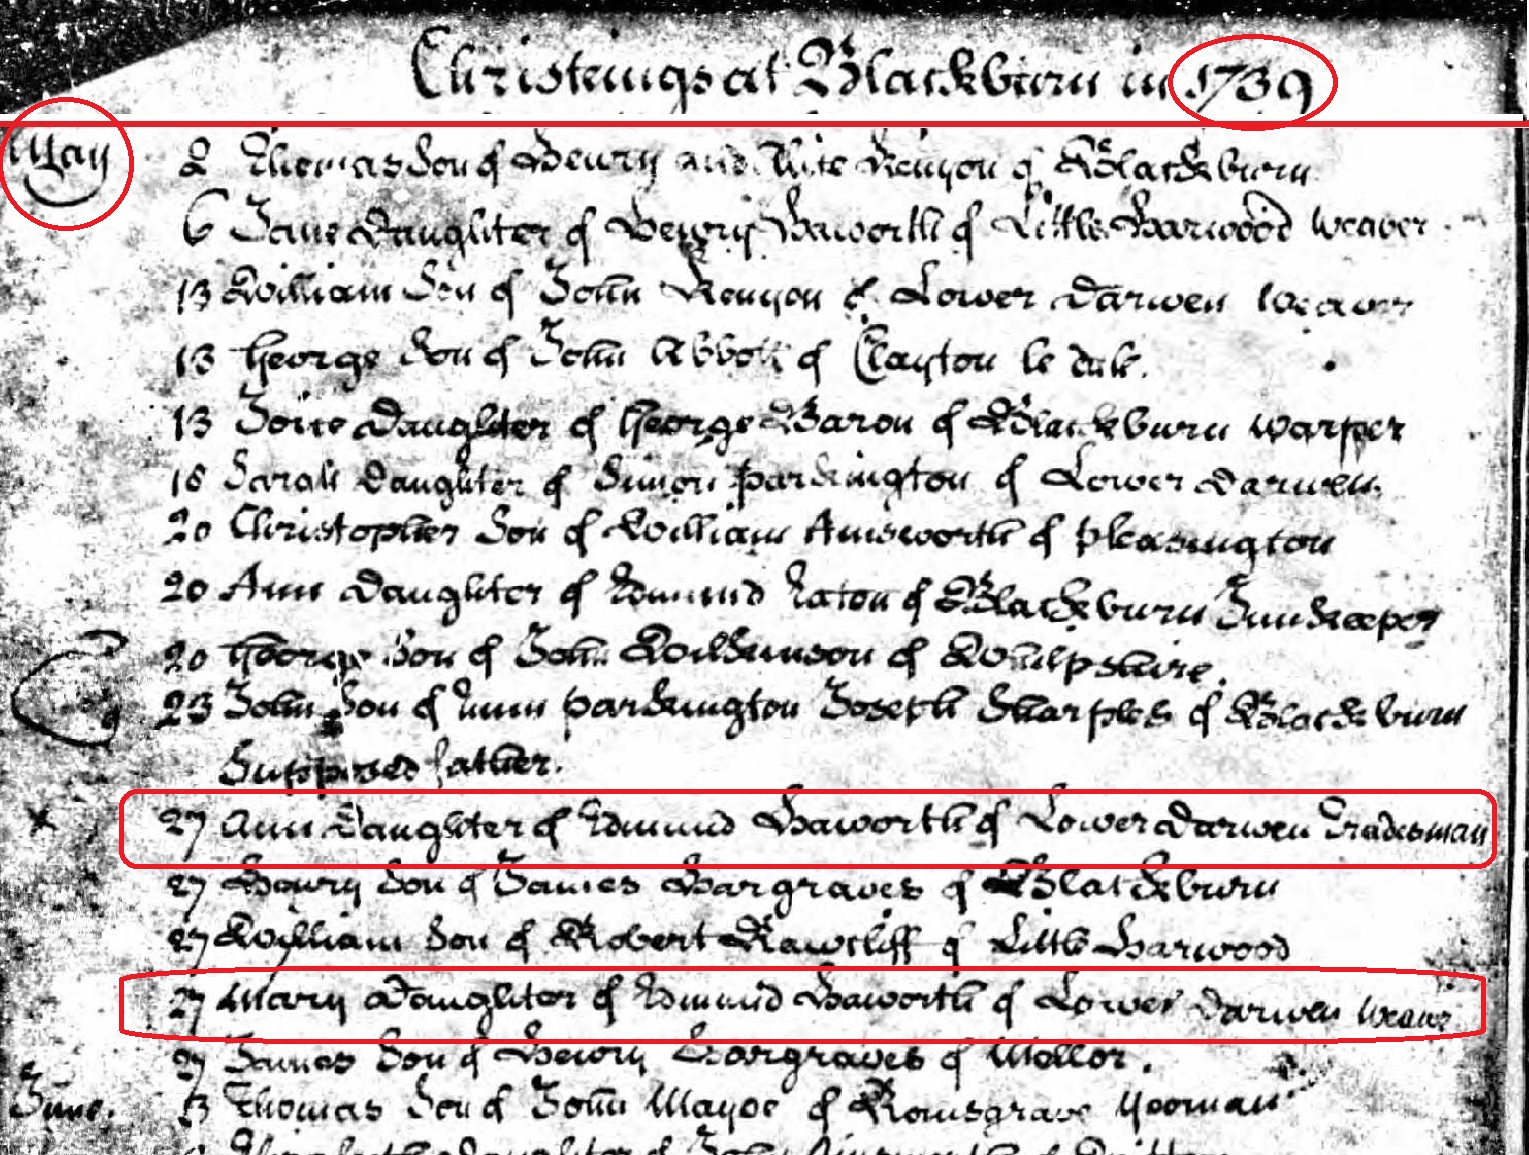 Christnings at Blackburn in 1739
May 2 Thomas Son of Henry and Kenyon of Blackburn
6 Jane Daughter of Henry Haworth of Little Harwood Weaver
13 William Son of John Kenyon of Lower Darwen Weaver
13 George Son of John Abbott of Clayton le dale.
13 Daughter of George Baron of Blackburn Warper
16 Sarah Daughter of Simon Parkington of Lower Darwen.
20 Christopher Son of William Ainsworth of Pleasington
20 Ann Daughter of Edmund Eaton of Blackburn Innkeeper
20 George Son of John Wilkinson of Willpshire.
23 John Son of Parkington Joseph Sharples of Blackburn
Supposed father.
x 27 Ann Daughter of Edmund Haworth of Lower Darwen Tradesman
27 Henry Son of James Hargraves of Blackburn
27 William Son of Robert Rawcliff of Little Harwood
27 Mary Daughter of Edmund Haworth of Lower Darwen Weaver
27 James Son of Henry Hargraves of Mellor.
June. 3 Thomas Son of John Mayoe of Yeoman
Daughter of John of